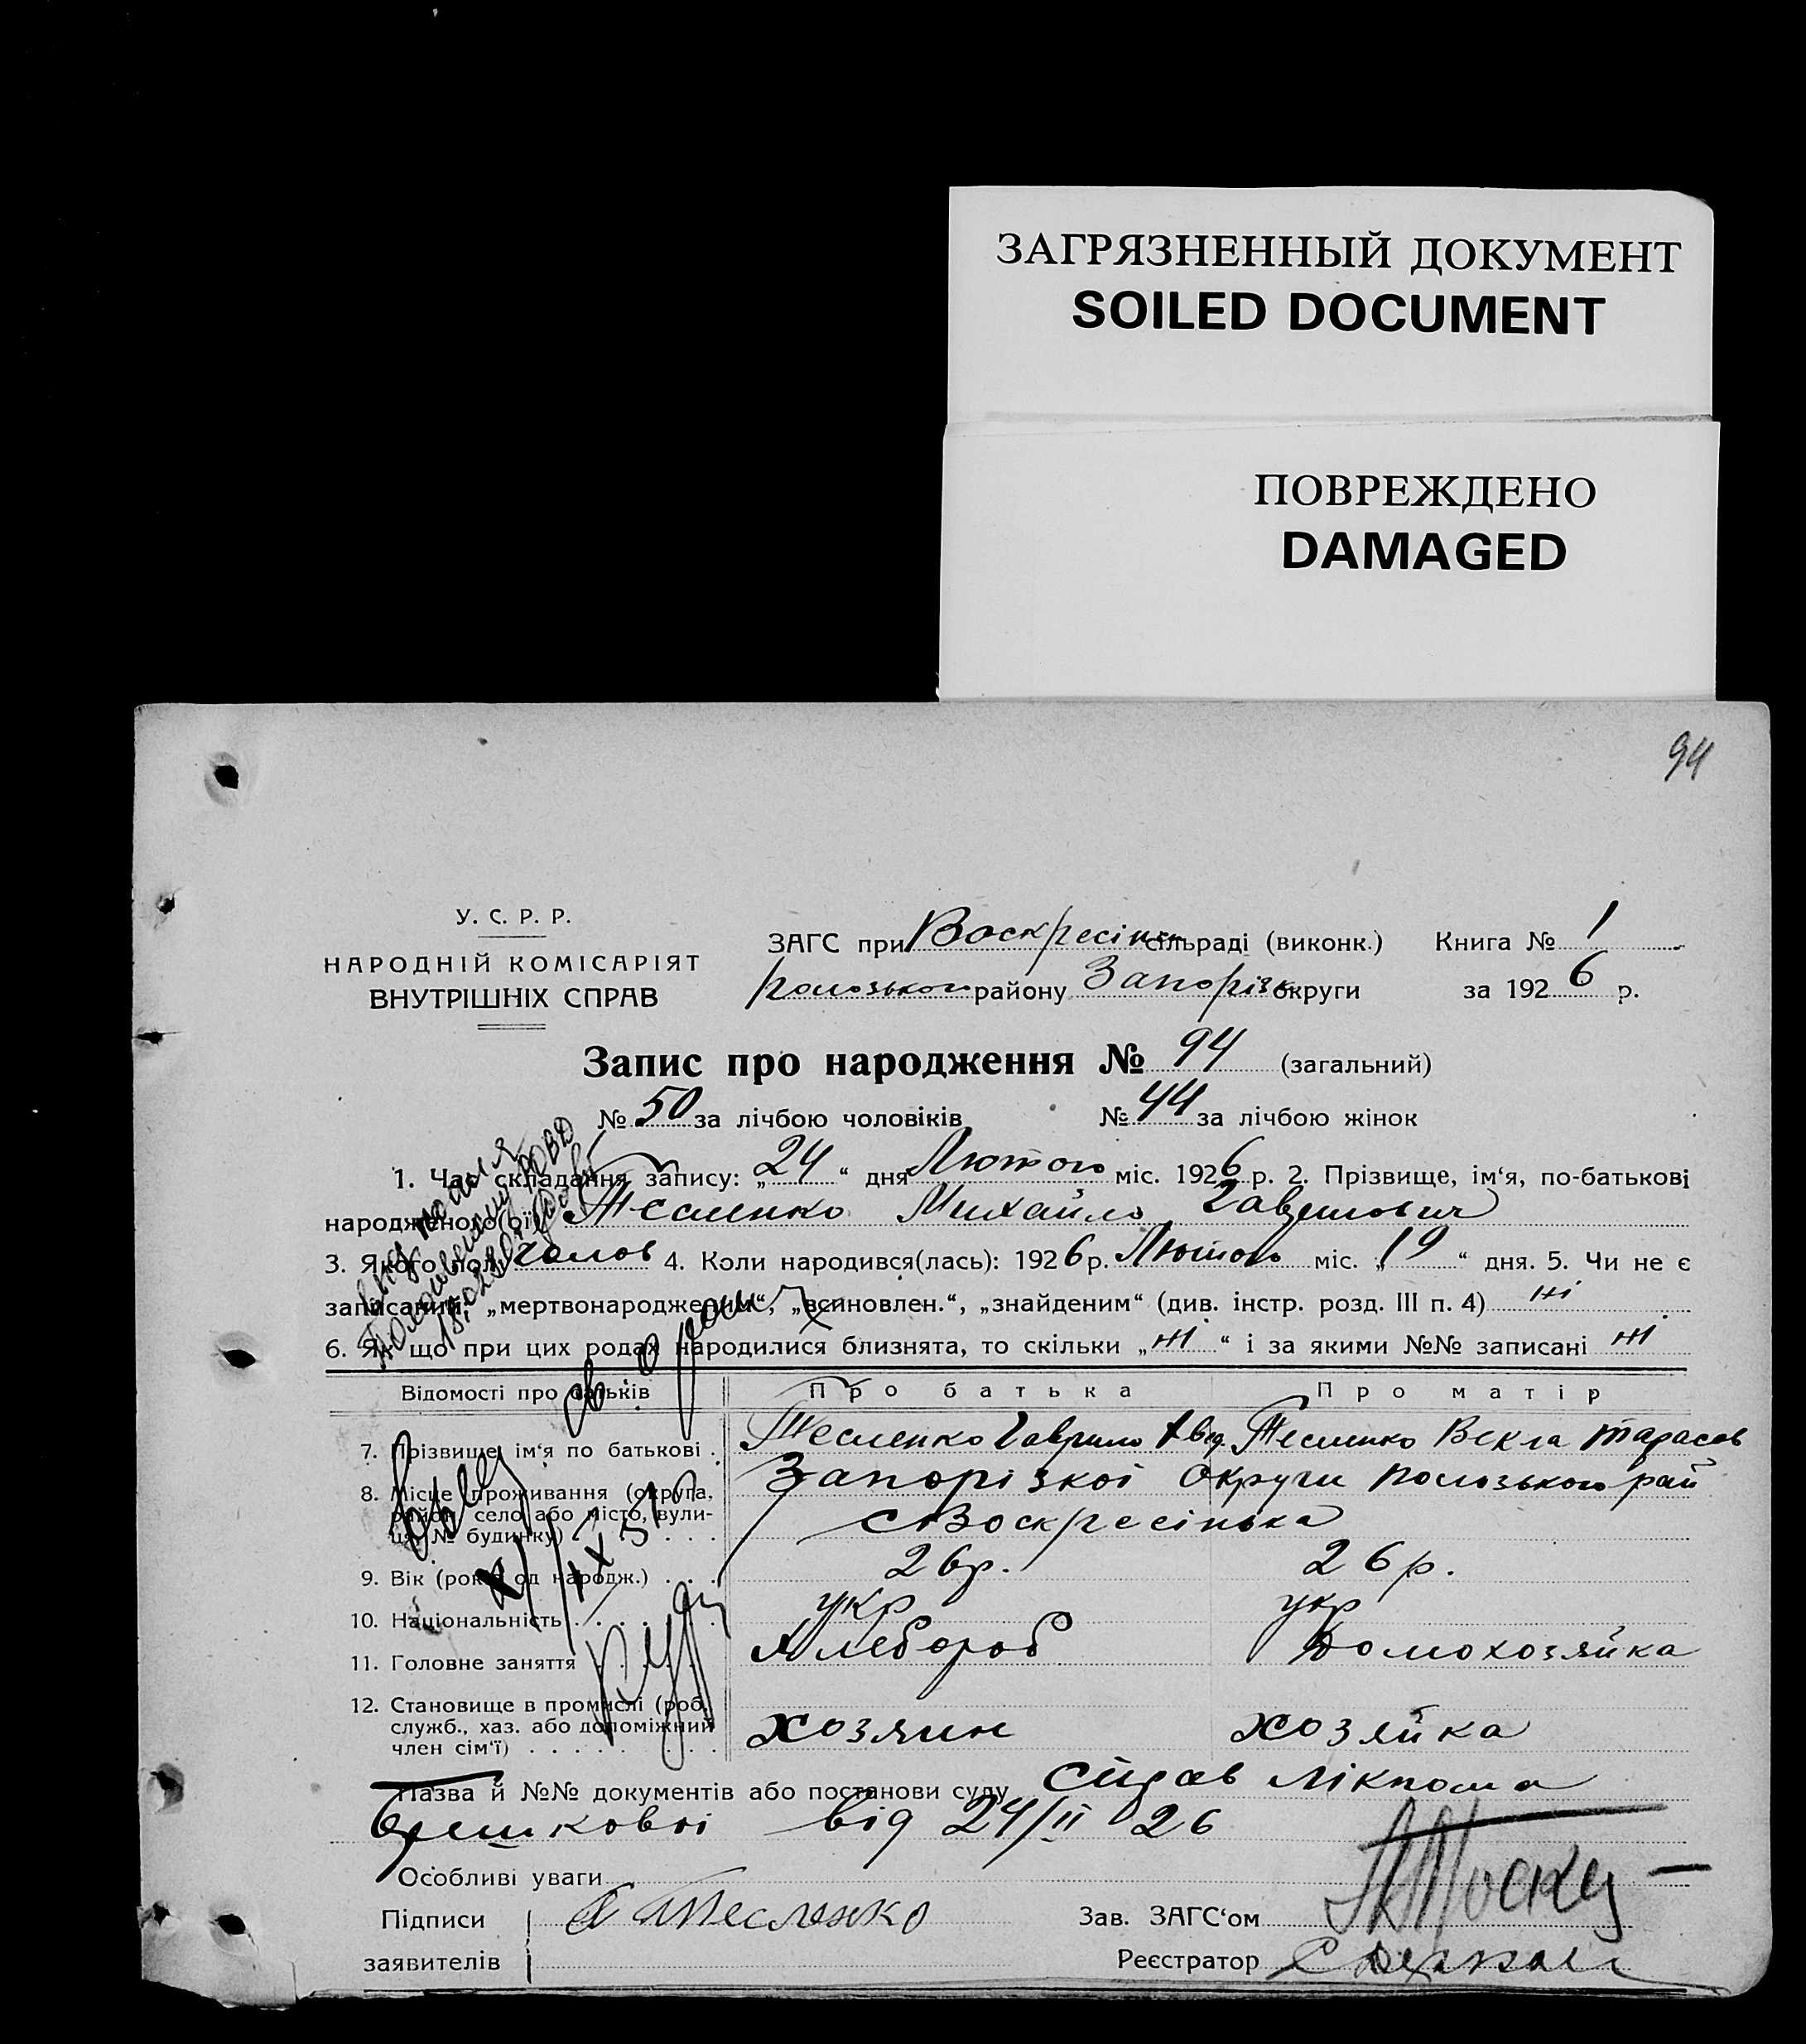 ЗАГРЯЗНЕННЫЙ ДОКУМЕНТ
SOILED DOCUMENT
ПОВРЕЖДЕНО
DAMAGED
94
У. С. Р. Р.
НАРОДНІЙ КОМІСАРІЯТ
ВНУТРІШНІХ СПРАВ
ЗАГС при Воскресінк сільраді (виконк.) Книга № 1
Полозького району Запорізк округи за 1926 р.
Запис про народження № 94 (загальний)
№ 50 за лічбою чоловіків № 44 за лічбою жінок
1. Час складання запису: „24“ дня Лютого міс. 1926 р. 2. Прізвище, ім‘я, по-батькові
народженого(ої) Тесленко Михайло Гаврилович
3. Якого полу чолов 4. Коли народився(лась): 1926 р. Лютого міс. „19“ дня. 5. Чи не є
записаний: „мертвонародженим“, „всиновлен.“, „знайденим“ (див. інстр. розд. III п. 4) ні
6. Як що при цих родах народилися близнята, то скільки „ні“ і за якими №№ записані ні
Відомості про батьків Про батька Про матір
7. Прізвище, ім‘я по батькові . Тесленко Гаврило Авд. Тесленко Векла Тарасов
8. Місце проживання (округа, район, село або місто, вулиця, № будинку) Запорізкої Округи Полозького рай
с Воскресінька
9. Вік (років од народж.) . . . 26р. 26р.
10. Національність . . . . . . укр укр
11. Головне заняття Хлебороб Домохозяйка
12. Становище в промислі (роб.,
служб., хаз. або допоміжний
член сім‘ї) . . . . . . . . . хозяин хозяйка
Назва й №№ документів або постанови суду
від 24/II 26
Особливі уваги
Підписи Тесленко Зав. ЗАГС‘ом
заявителів Реєстратор